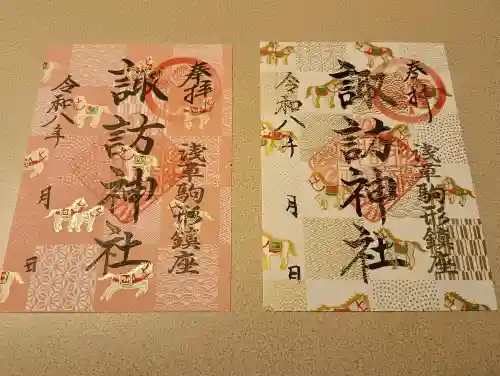 奉拝
浅草駒形鎮座
諏訪神社
令和八年
月
日
奉拝
浅草駒形鎮座
諏訪神社
令和八年
月
日